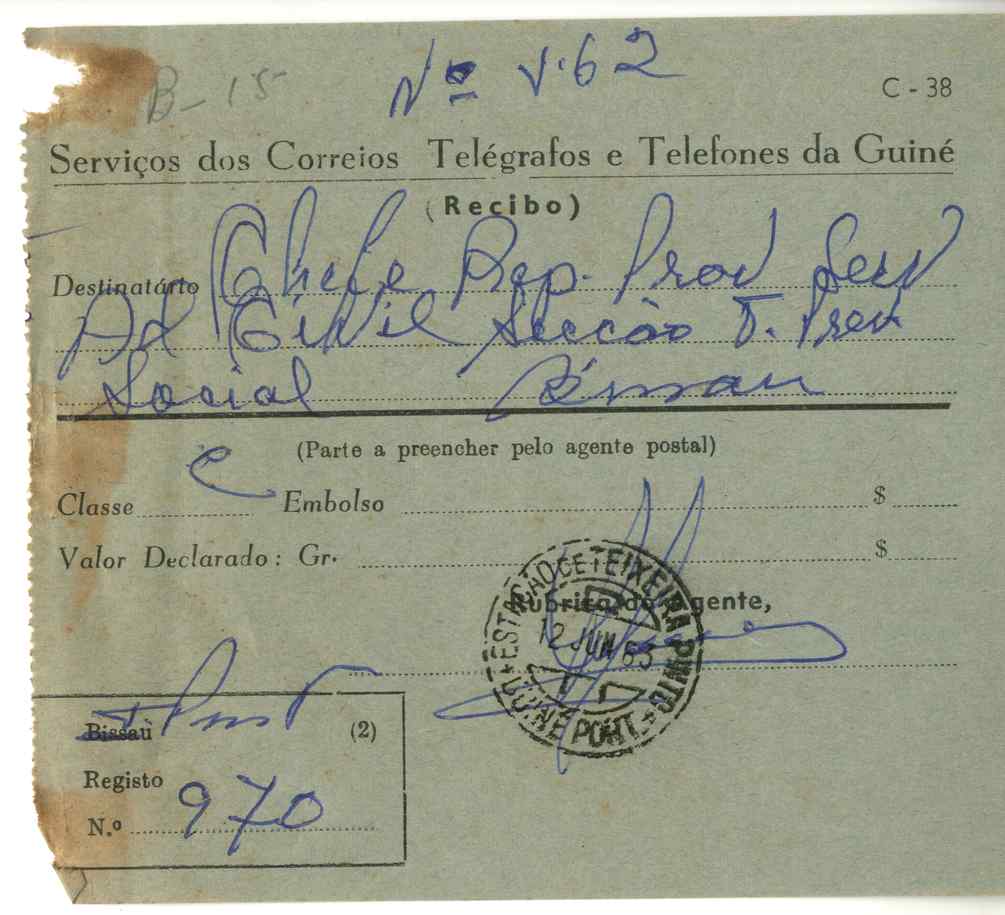 B-15
Nº V.62
C - 38
Serviços dos Correios Telégrafos e Telefones da Guiné
(Recibo)
Destinatário Chefe Rep. Prov Serv
Ad Civil Secção T. Prev.
Social Bissau
(Parte a preencher pelo agente postal)
Classe C Embolso $
Valor Declarado: Gr. $
Rubrica do Agente,
ESTAÇÃO DE TEIXEIRA PINTO
12 JUN 63
GUINÉ PORT.
Bissau (2)
Registo
N.º 970